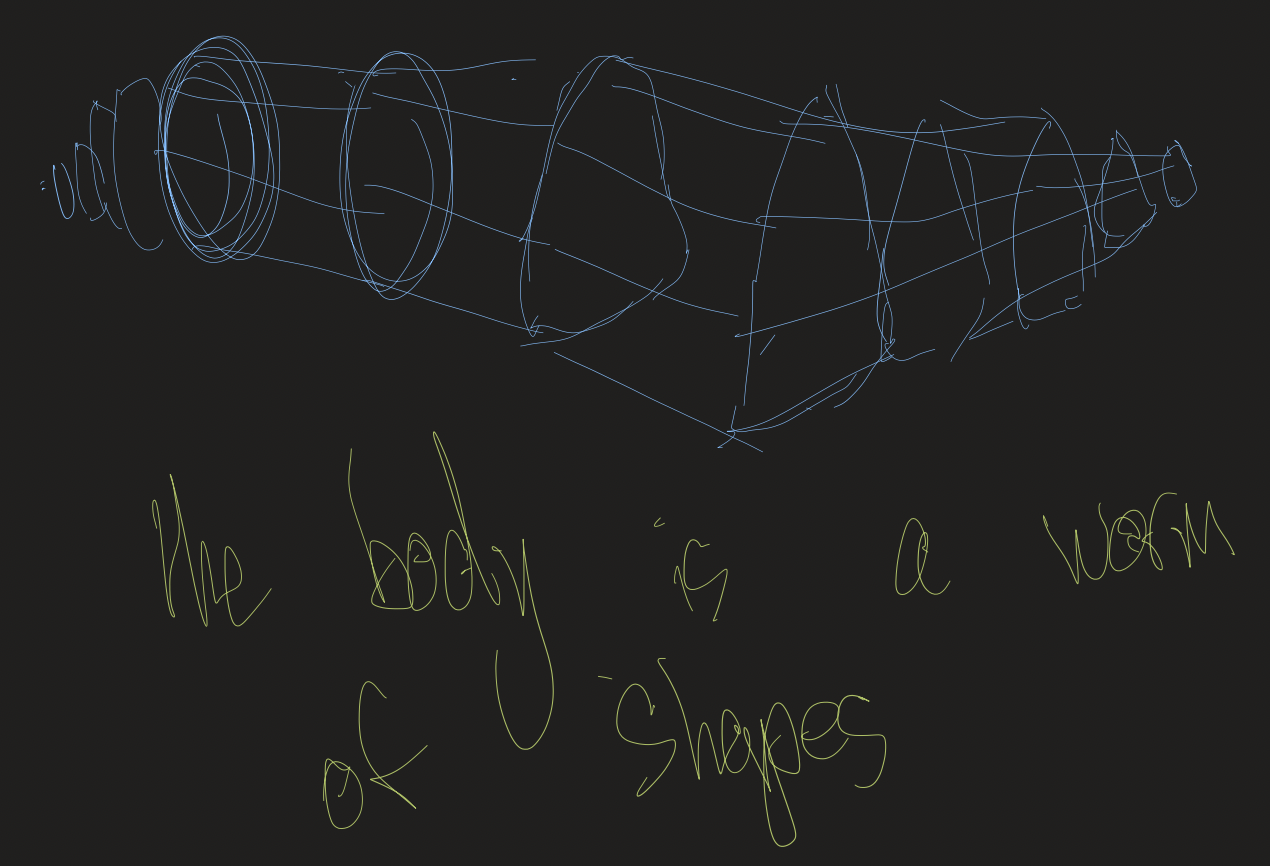 the body is a worm
of shapes